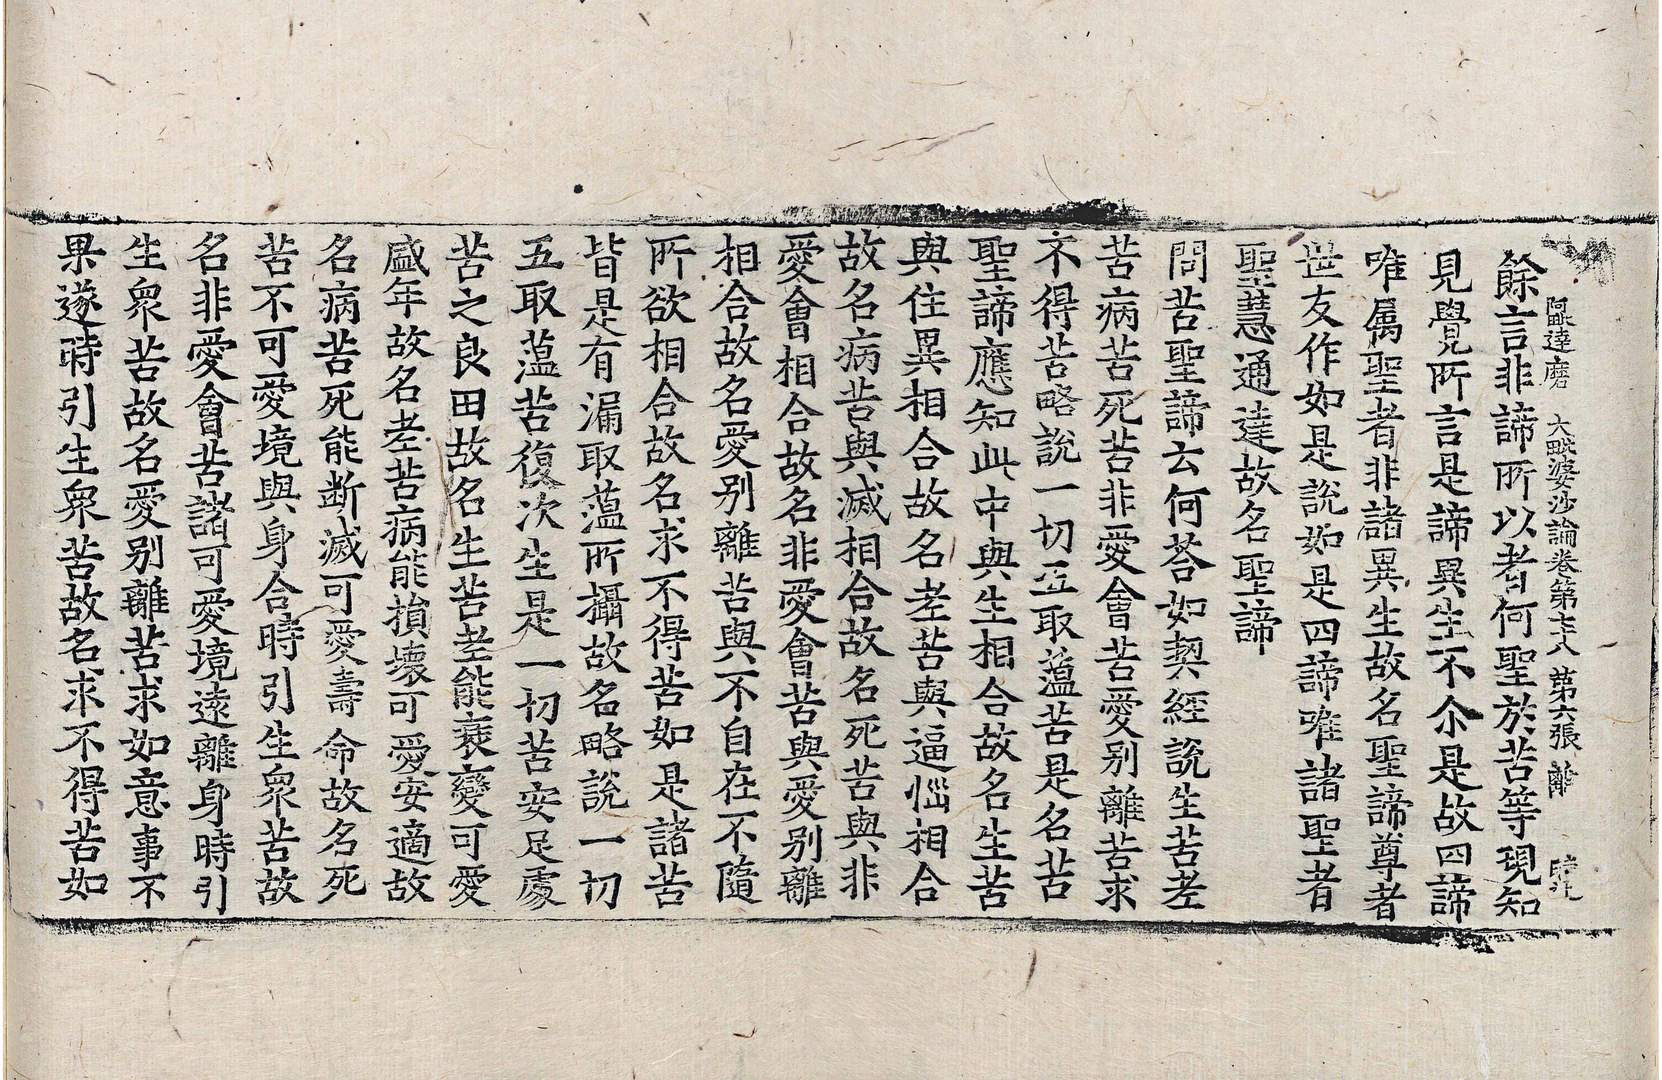 阿毗達磨大毗婆沙論卷第七十八 第六張 離
餘言非諦所以者何聖於苦等現知
見覺所言是諦異生不尒是故四諦
唯屬聖者非諸異生故名聖諦尊者
世友作如是說如是四諦唯諸聖者
聖慧通達故名聖諦
問苦聖諦云何荅如契經說生苦老
苦病苦死苦非愛會苦愛別離苦求
不得苦略說一切五取蘊苦是名苦
聖諦應知此中與生相合故名生苦
與住異相合故名老苦與逼惱相合
故名病苦與滅相合故名死苦與非
愛會相合故名非愛會苦與愛別離
相合故名愛別離苦與不自在不隨
所欲相合故名求不得苦如是諸苦
皆是有漏取蘊所攝故名略說一切
五取蘊苦復次生是一切苦安足處
苦之良田故名生苦老能衰變可愛
盛年故名老苦病能損壞可愛安適故
名病苦死能断滅可愛壽命故名死
苦不可愛境與身合時引生衆苦故
名非愛會苦諸可愛境遠離身時引
生衆苦故名愛別離苦求如意事不
果遂時引生衆苦故名求不得苦如